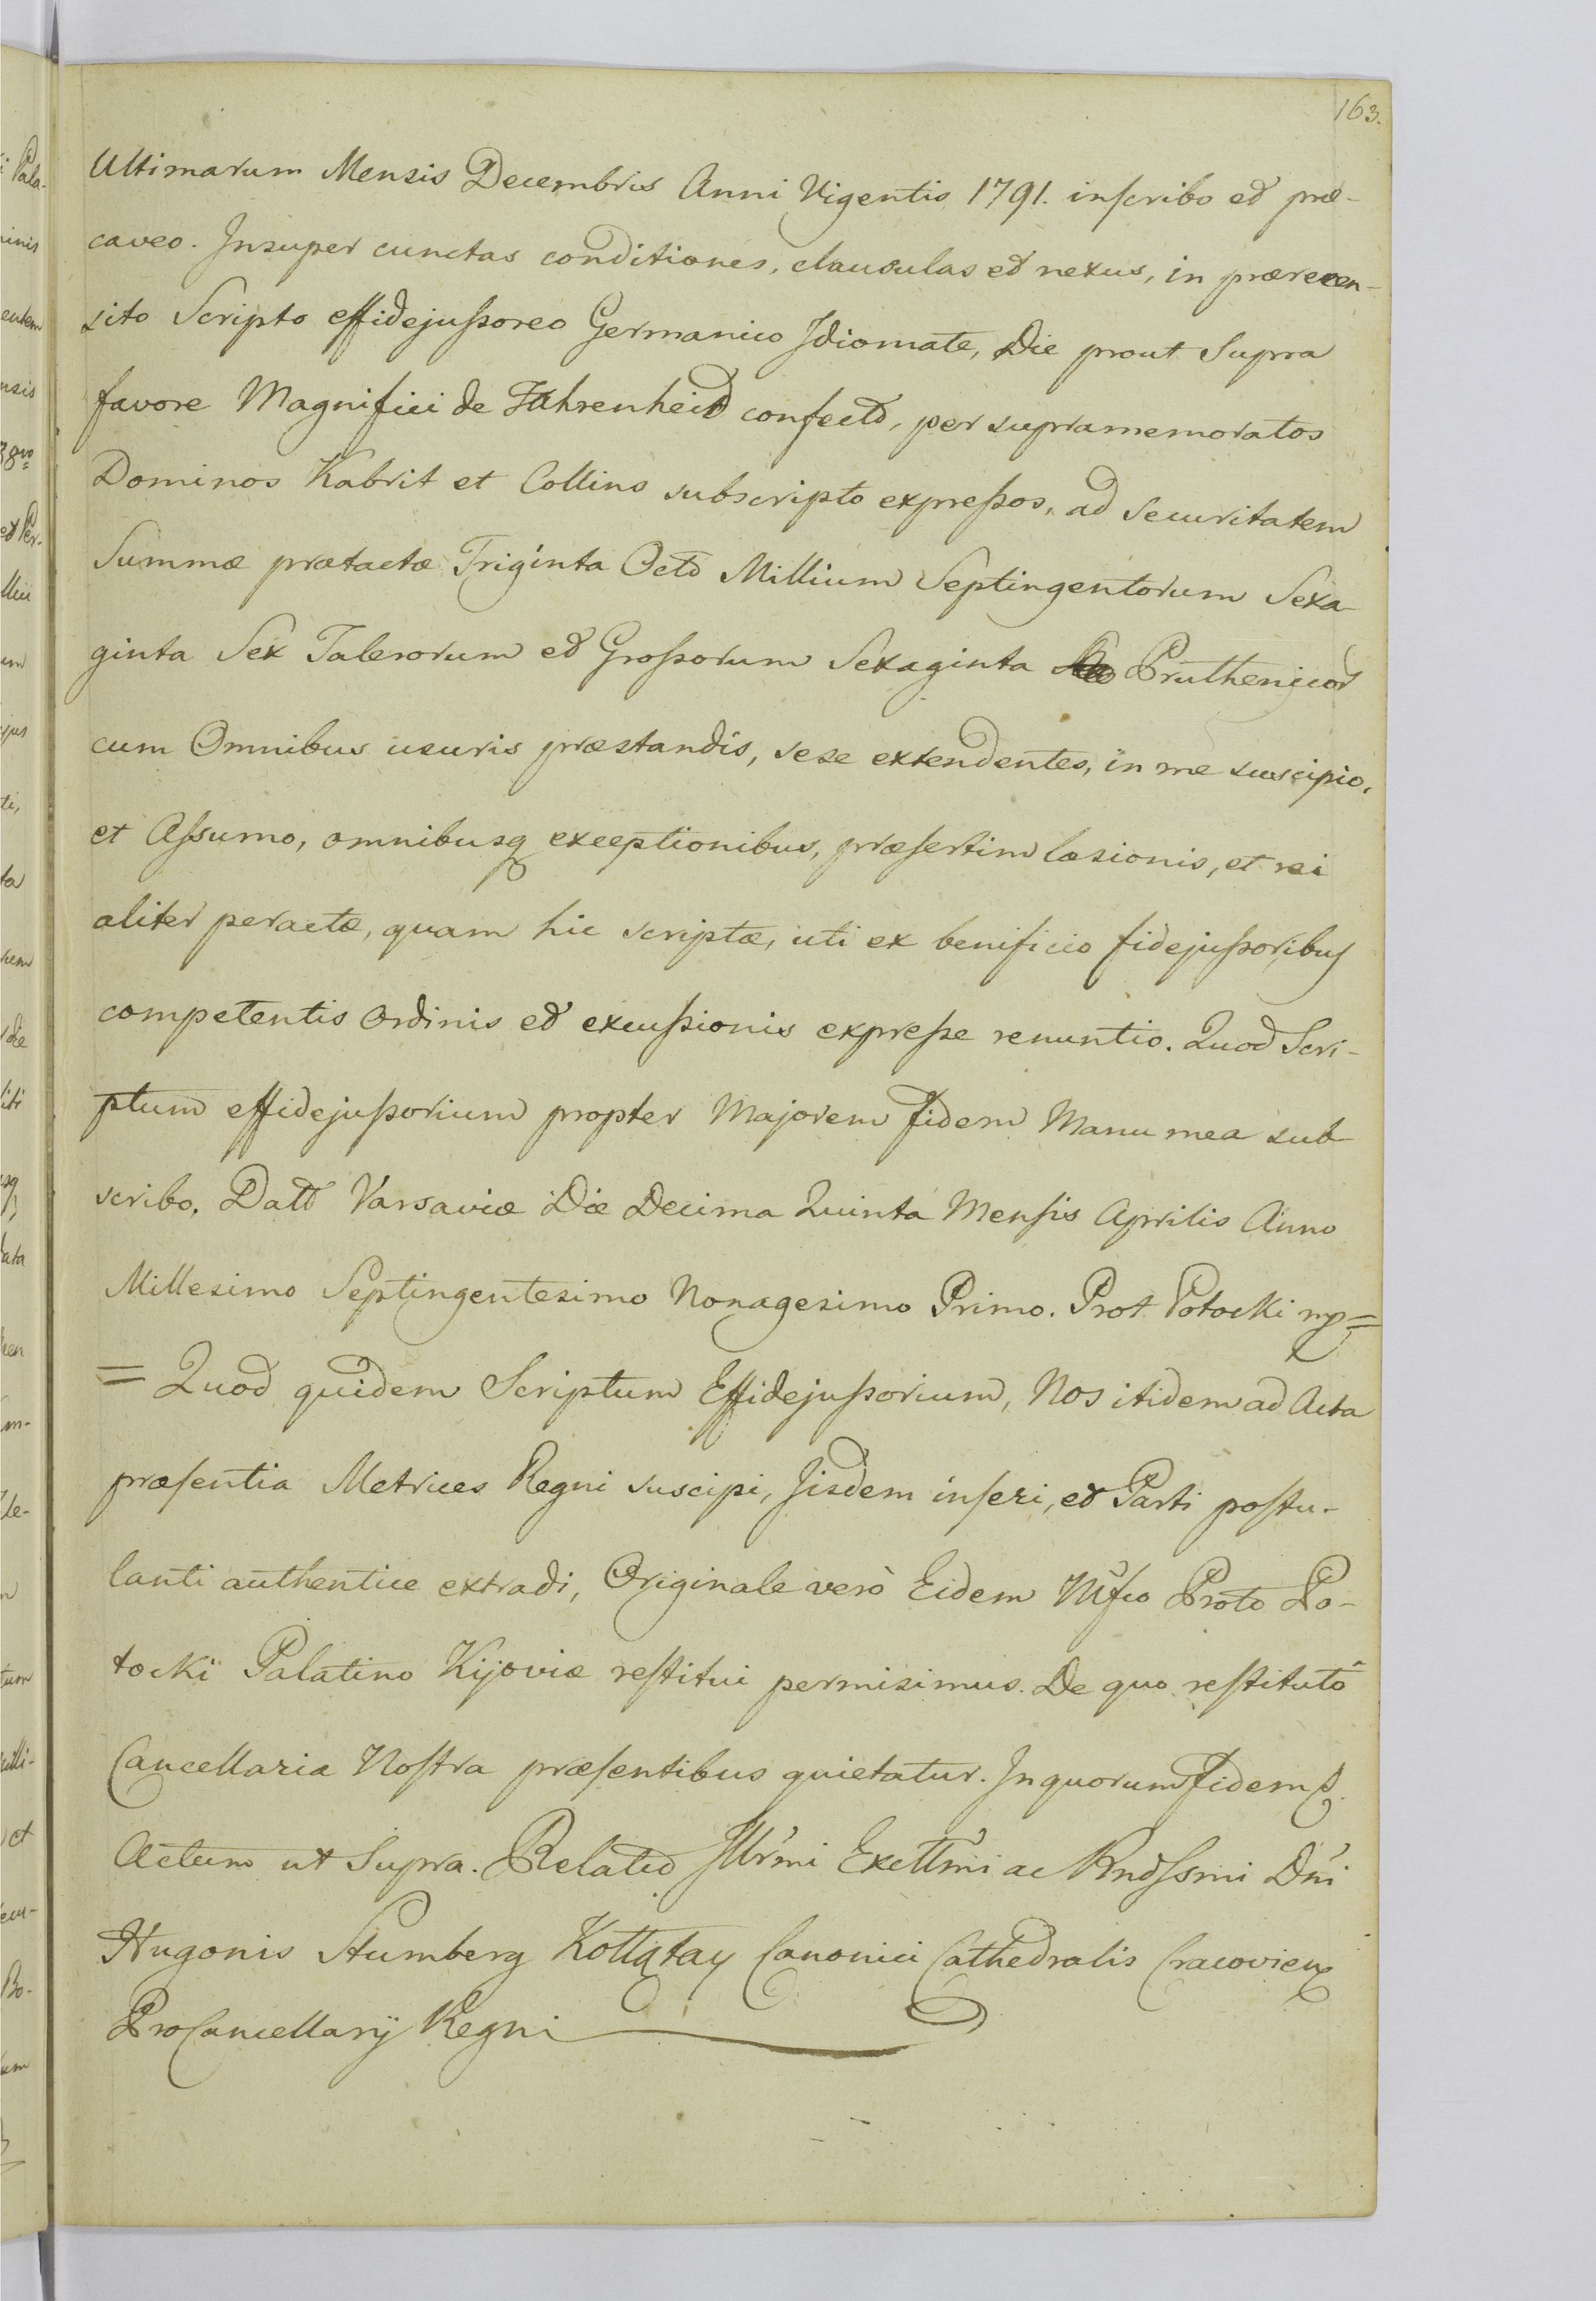 163.
Ultimarum Mensis Decembris Anni Vigentis 1791. inscribo et præ-
caveo. Insuper cunctas conditiones, clausulas et nexus, in prærecen-
sito Scripto effidejussoreo Germanico Idiomate, Die prout Supra
favore Magnifici de Fahrenheid confecto, per supramemoratos
Dominos Kabrit et Collins subscripto expressos, ad securitatem
Summæ prætactæ Triginta Octo Millium Septingentorum Sexa-
ginta Sex Talerorum et Grossorum Sexaginta Pruthenicor
cum Omnibus usuris præstandis, sese extendentes, in me suscipio,
et Assumo, omnibusq exceptionibus, præsertim læsionis, et rei
aliter peractæ, quam hic scriptæ, uti ex benificio fidejussoribus
competentis Ordinis et excussionis expresse renuntio. Quod Scri-
ptum effidejussorium propter Majorem fidem Manu mea sub
scribo. Datt Varsaviæ Die Decima Quinta Mensis Aprilis Anno
Millesimo Septingentesimo Nonagesimo Primo. Prot Potocki mp=
= Quod quidem Scriptum Effidejussorium, Nos itidem ad Acta
præsentia Metrices Regni suscipi, Iisdem inseri, et Parti postu-
lanti authentice extradi, Originale verò Eidem Mfco Proto Po-
tocki Palatino Kijoviæ restitui permisimus. De quo restitutô
Cancellaria Nostra præsentibus quietatur. In quorum Fidem
Actum ut Supra. Relatio Illrmi Exctlmi ac Rndssmi Dni
Hugonis Stumberg Kołłątay Canonici Cathedralis Cracovien
ProCancellarij Regni
i Pala-
ninis
entem
nsis
38vo
et Per-